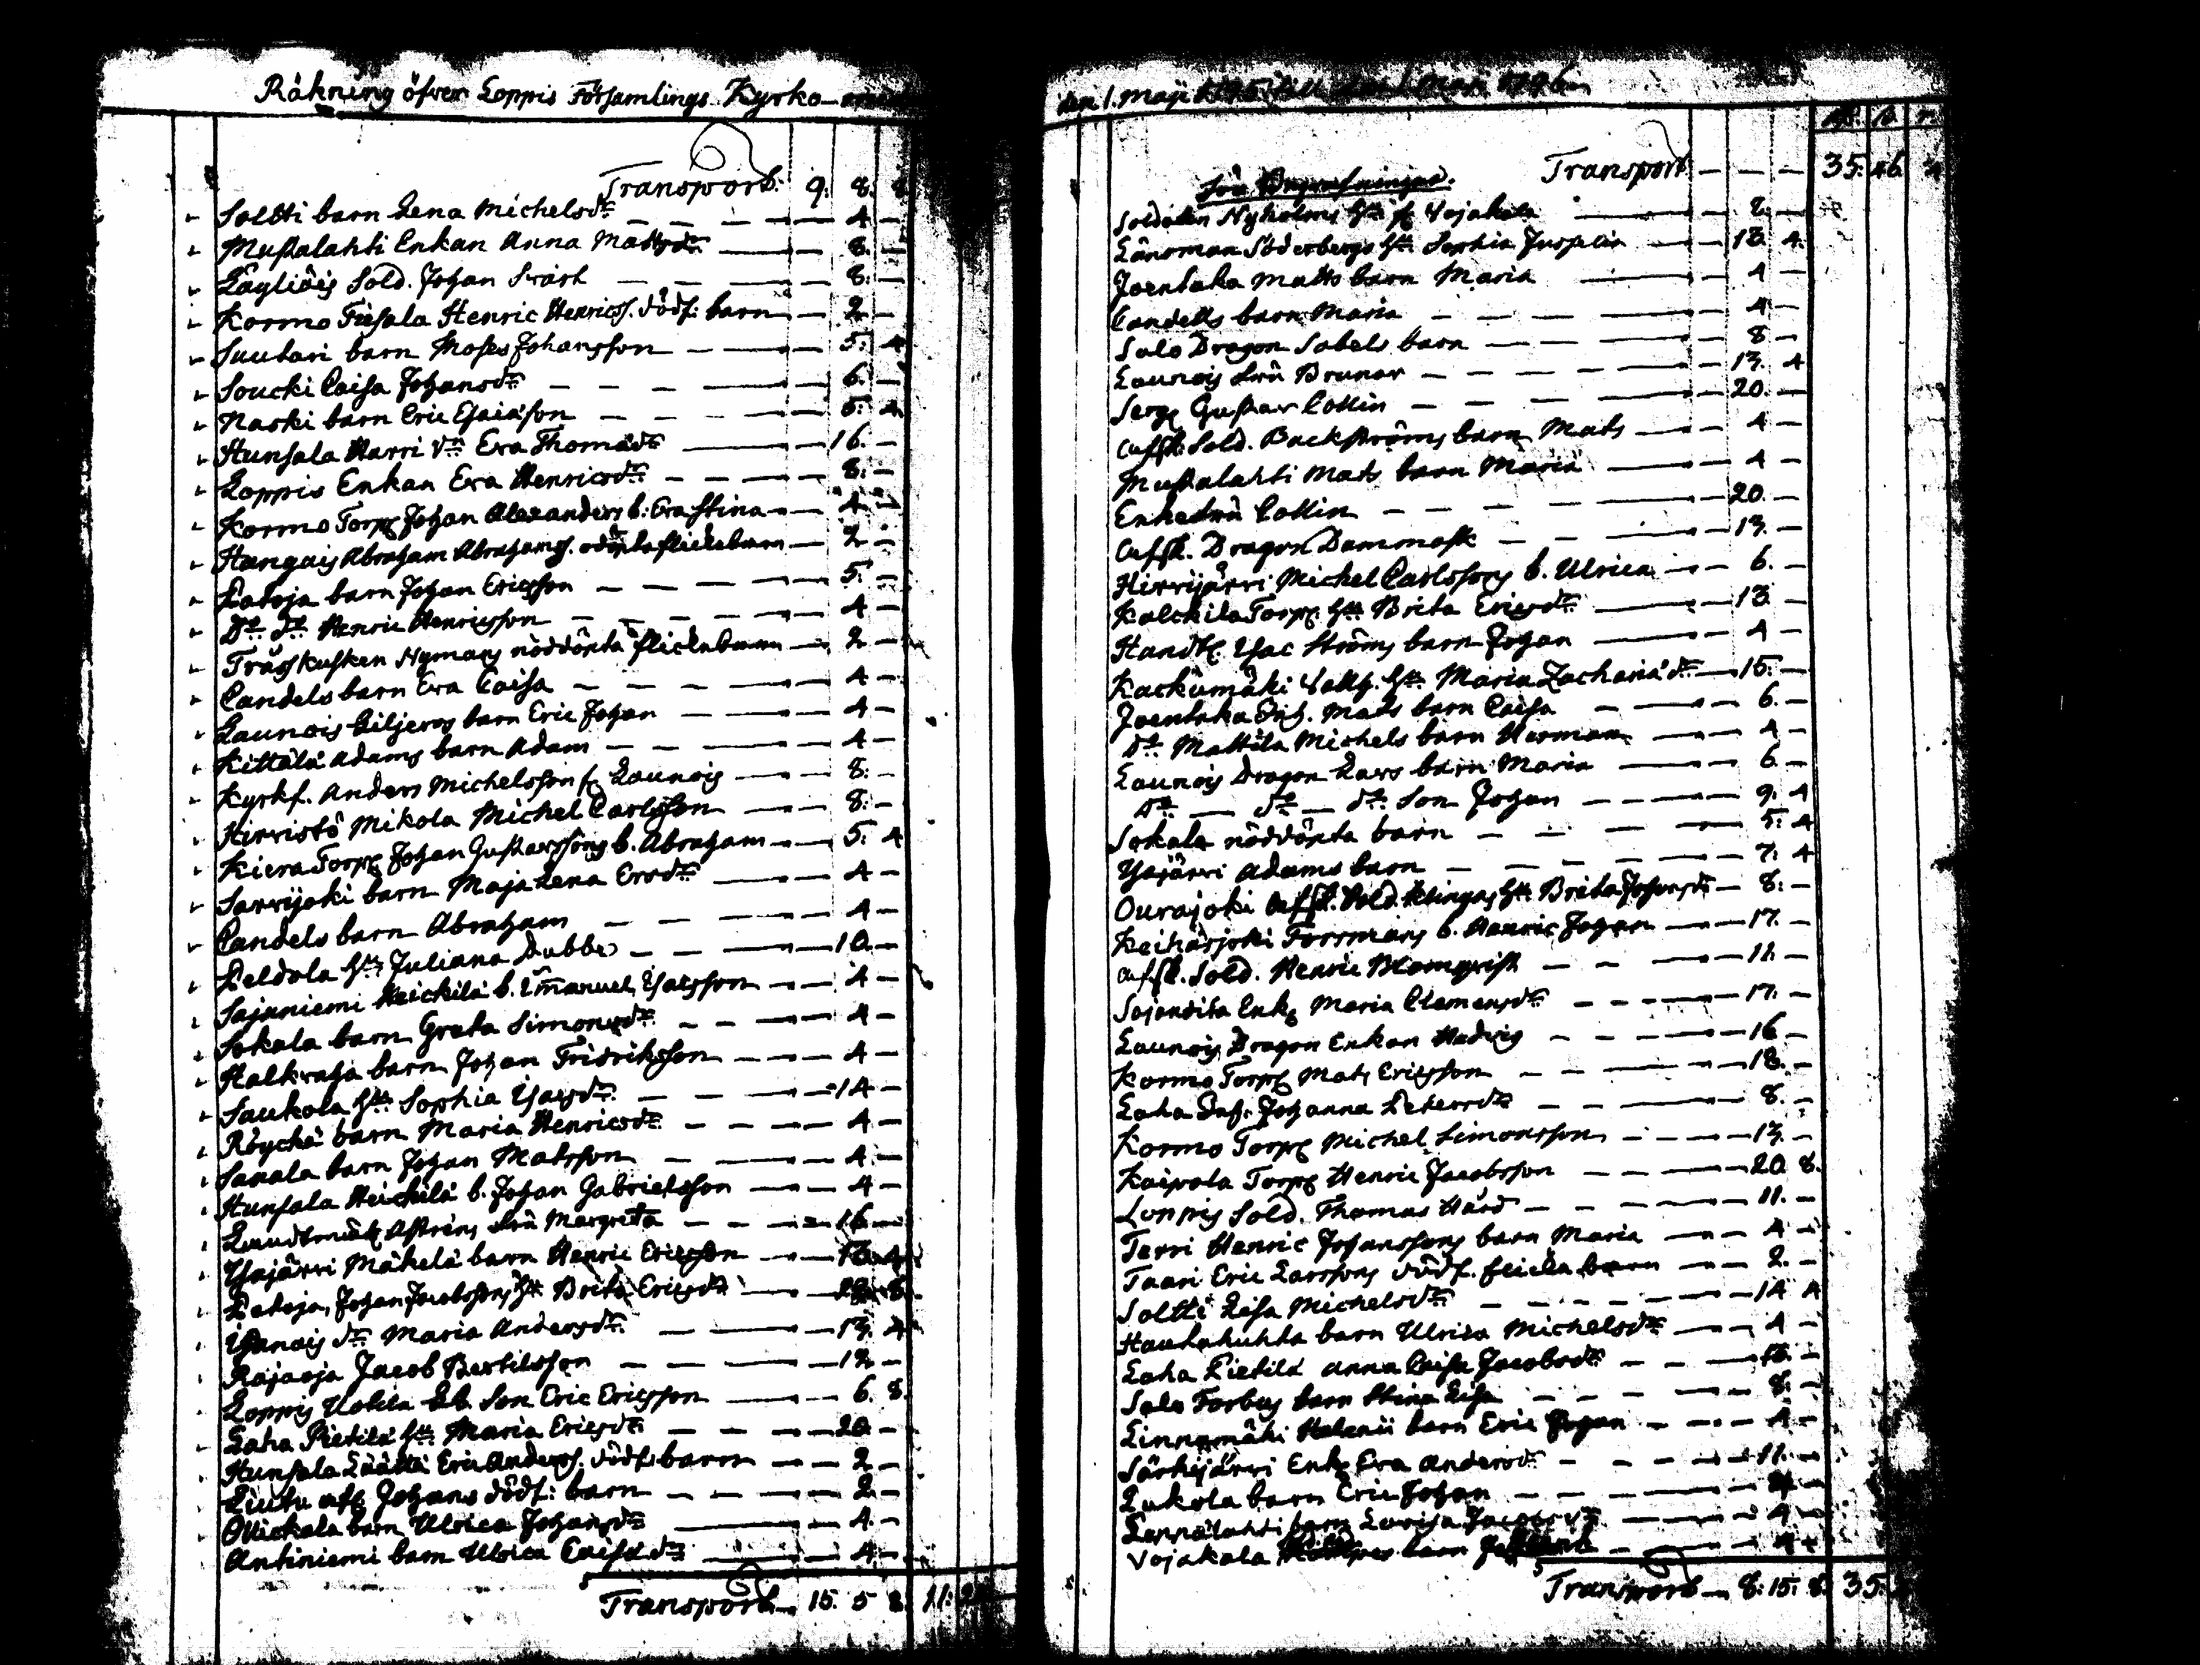 Räkning öfver Loppis Församlings Kyrko
Transport: 9. 8.
Soltti barn Lena Michelsdr — 4 —
Mustalahti Enkan Anna Mattsdr — 8. —
Läyliäis Sold. Johan Svärt — 8. —
Kormo Fusala Henric Henricss. dödf: barn — 2 —
Suutari barn Moses Johansson — 5. 4
Soucki Caisa Johansdr — 6. —
Naski barn Eric Esaiæson — 5. 4
Hunsala Harri dr Eva Thomædr — 16. —
Loppis Enkan Eva Henricsdr — 8. —
Kormo Torp Johan Alexanders b. Eva Stina — 4 —
Hangais Abraham Abrahams. odöpta flickebarn — 2 —
Latoja barn Johan Ericsson — 5. —
Do do Henric Henricsson — 4 —
Träsk kusken Nymans nöddöpta flickebarn — 2 —
Candels barn Eva Caisa — 4 —
Launois Liljeros barn Eric Johan — 4 —
Kittälä Adams barn Adam — 4 —
Kyrkf. Anders Michelsson f. Launois — 8. —
Hirvistö Mikola Michel Carlsson — 8. —
Kiera Torp Johan Gustavssons b. Abraham — 5. 4
Sarrijoki barn Maja Lena Ersdr — 4 —
Candels barn Abraham — 4 —
Peldola hu Juliana Dubbe — 10. —
Sajaniemi Heickilä b. Emanuel Isacsson — 4 —
Sokala barn Greta Simonsdr — 4 —
Halkraha barn Johan Fridriksson — 4 —
Saukola hu Sophia Isacsdr — 14 —
Röyckä barn Maria Henricsdr — 4 —
Sakala barn Johan Matsson — 4 —
Hunsala Heickilä b. Johan Gabrielsson — 4 —
Landtmät Astréns Fru Margreta — 16 —
Ysajärvi Mäkelä barn Henric Ericsson —
Latoja Johan Jacobssons hu Brita Ericsdr —
dr Maria Andersdr — 13. 4
Rajaoja Jacob Bertilsson — 12 —
Loppis Uotila Son Eric Ericsson — 6. 8.
Laha Pietilä hu Maria Ericsdr — 20 —
Hunsala Läätti Eric Anderss. dödf. barn — 2 —
Johans dödf: barn — 2 —
Ollickala barn Ulrica Johansdr — 4 —
Antiniemi barn Ulrica Caisa dr — 4 —
Transport — 15. 5 8. 11.
den 1. Maji 1795 till den 1 Maji 1796
Transport — 35. 46.
För Begrafningar.
Soldaten Nyholms hu f. Vojakala — 8. —
Länsman Söderbergs hu Sophia — 13. 4.
Joentaka Matts barn Maria — 4 —
Candells barn Maria — 4 —
Salo Dragon Sabels barn — 8 —
Launois Fru Bruner — 13. 4
Serg Gustav Collin — 20. —
Afsk. Sold. Backströms barn Mats — 4 —
Mustalahti Mats barn Maria — 4 —
Enkefru Collin — 20. —
Afsk. Dragon Dammask — 13. —
Hirvijärvi Michel Carlssons b. Ulrica — 6. —
Kalckila Torp. hu Brita Ericsdr — 13 —
Handtv. Isac Ströms barn Johan — 4 —
Kackumäki hu Maria Zachariædr — 15. —
Joentaka Inh. Mats barn Caisa — 6. —
do Mattila Michels barn Herman — 4 —
Launois Dragon Lars barn Maria — 6 —
do — do — do Son Johan — 9. 4
Sokala nöddöpta barn — 5. 4
Ysajärvi Adams barn — 7. 4
Ourajoki Afsk. Sold. Klingas hu Brita Johansdr — 8. —
Keihäsjoki Forsmans b. Henric Johan — 17. —
Afsk. Sold. Henric Blomqvist — 11. —
Enk Maria Clemensdr — 17. —
Launois Dragon Enkan Hedvig — 16 —
Kormo Torp Mats Ericsson — 18. —
Laha Inh. Johanna Petersdr — 8. —
Kormo Torp Michel Simonsson — 13. —
Kaipola Torp Henric Jacobsson — 20 8.
Loppis Sold. Thomas Hård — 11. —
Terri Henric Johanssons barn Maria — 4 —
Taari Eric Larssons dödf. flicke barn — 2. —
Soltti Lisa Michelsdr — 14 4
Hautakuhta barn Ulrica Michelsdr — 4 —
Laha Pietilä Anna Caisa Jacobsdr —
Salo Forbus barn Stina Lisa — 8. —
Linnamäki Helenii barn Eric Johan — 4 —
Särkijärvi Enk Eva Andersdr — 11. —
Lukola barn Eric Johan —
Lappalahti barn Lovisa Jacobsdr — 4 —
Vojakala barn — 4 —
Transport — 8. 15. 8. 35.